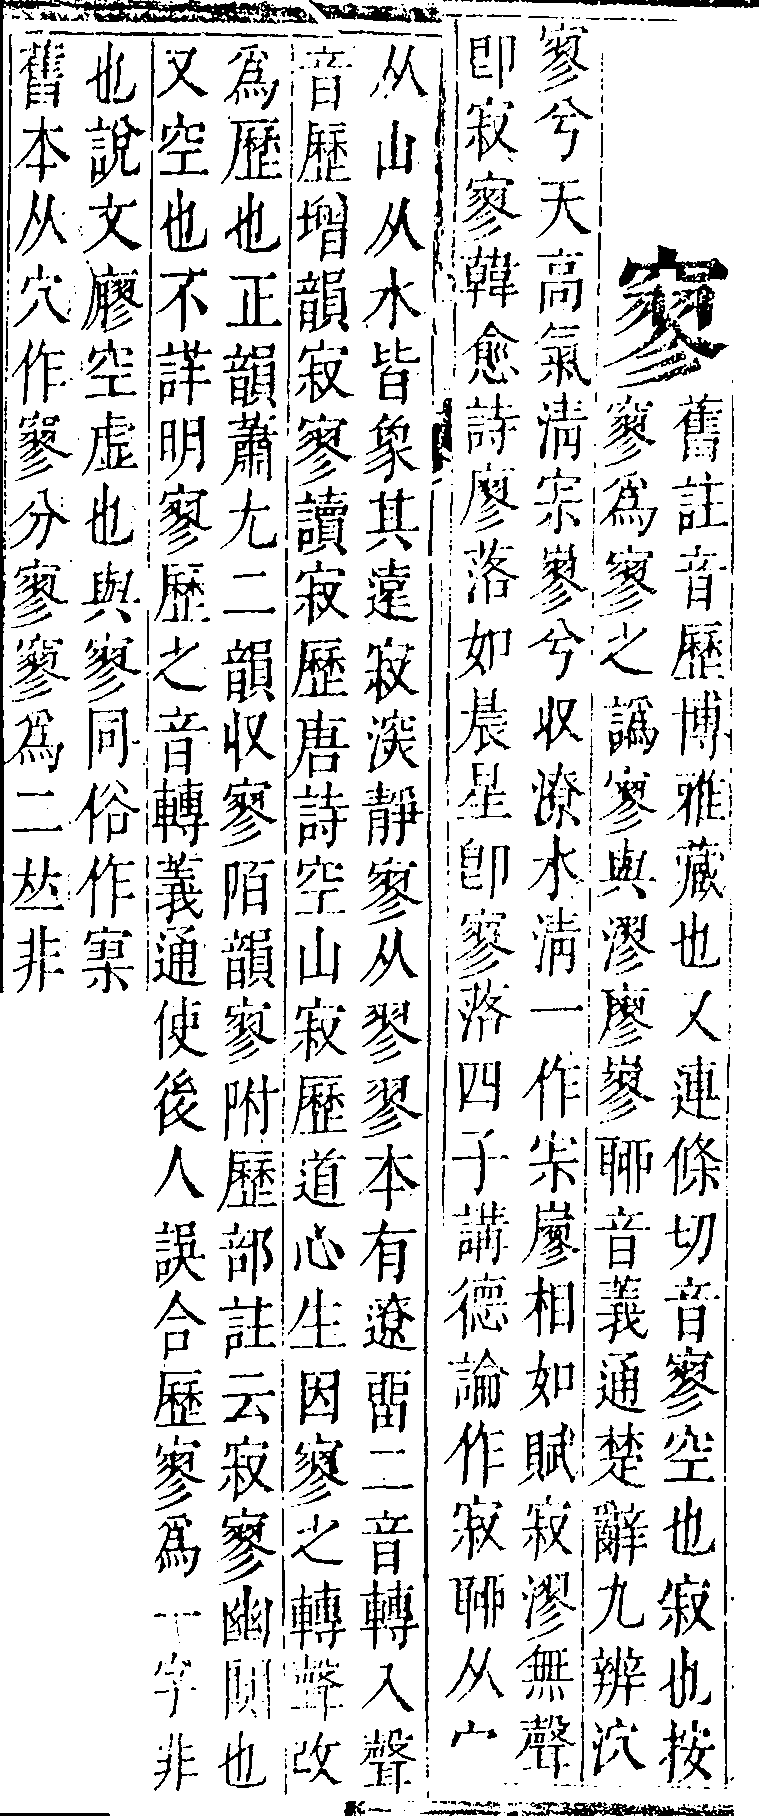 寥
舊註音歷博雅藏也又連條切音寥空也寂也按
寥爲寥之譌寥與漻廖嵺聊音義通楚辭九辨泬
寥兮天高氣淸宗嵺兮收潦水淸一作宗廫相如賦寂漻無聲
卽寂寥韓愈詩廖落如晨星卽寥落四子講德論作寂聊从宀
从山从水皆象其遠寂深靜寥从翏翏本有遼畱二音轉入聲
音歷增韻寂寥讀寂歷唐詩空山寂歷道心生因寥之轉聲改
爲歷也正韻蕭尤二韻収寥陌韻寥附歷部註云寂寥幽閴也
又空也不詳明寥歷之音轉義通使後人誤合歷寥爲一字非
也說文廫空虛也與寥同俗作寥
舊本从穴作寥分寥寥爲二𠀤非